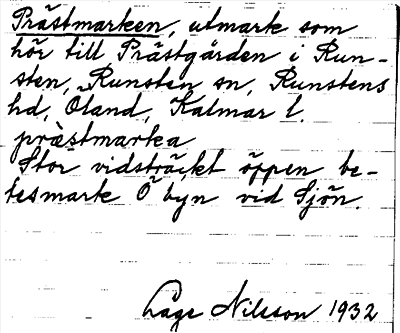 Prästmarken, utmark som
hör till Prästgården i Run-
sten, Runsten sn, Runstens
hd, Öland, Kalmar l.
pràstmarka
Stor vidsträckt öppen be-
tesmark Ö byn vid Sjön.
Åge Nilsson 1932